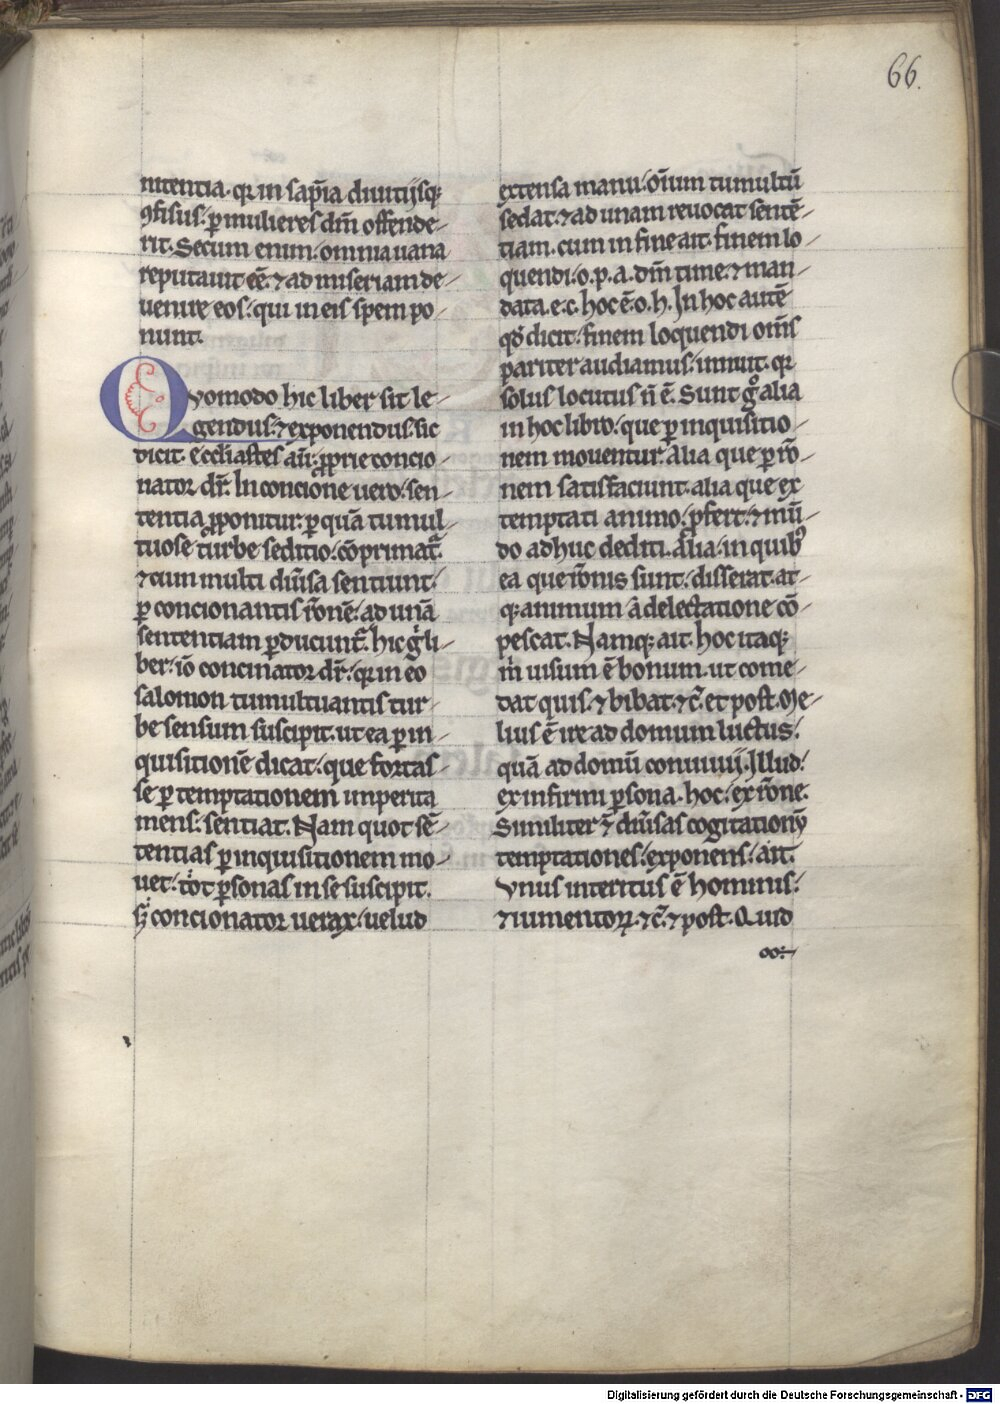 66.
nitentia. qr in sap̃ia diuitijsq;
ꝯfisus. ꝑ mulieres dm̃ offende-
rit. Secum enim. omnia uana
reputauit eẽ. ⁊ ad miseriam de-
uenire eos. qui in eis spem po-
nunt.
Qvomodo hic liber sit le-
gendus. ⁊ exponendus. sic
dicit. Eccłiastes aũ. ꝓprie concio-
nator dr̃. In concione uero. sen-
tentia ꝓponitur. ꝑ quã tumul-
tuose turbe seditio. cõprimat᷑.
⁊ cum multi diũsa sentiunt.
ꝑ concionantis rõnẽ. ad unã
sententiam ꝑducunt᷑. hic gͥ li-
ber. iõ concinator dr̃. qr in eo
salomon tumultuantis tur-
be sensum suscipit. ut ea ꝑ in-
quisitionẽ dicat. que fortas-
se ꝑ temptationem inperita
mens. sentiat. Nam quot sẽ-
tentias ꝑ inquisitionem mo-
uet. tot ꝑsonas in se suscipit.
Sꝫ concionator uerax. uelud
extensa manu. oĩum tumultũ
sedat. ⁊ ad unam reuocat sentẽ-
tiam. cum in fine ait. finem lo-
quendi. o. p. a. dm̃ time. ⁊ man-
data. e. c. hoc ẽ. o. h. In hoc autẽ
qđ dicit. finem loquendi om̃s
pariter audiamus. innuit. qr
solus locutus ñ ẽ. Sunt gͦ alia
in hoc libro. que ꝑ inquisitio-
nem mouentur. alia que ꝑ rõ-
nem satisfaciunt. alia que ex
temptati animo. ꝓfert. ⁊ mũ-
do adhuc dediti. alia. in quibꝰ
ea que rõnis sunt. disserat. at-
q; animum a delectatione cõ-
pescat. Namq; ait. hoc itaq;
m̊ uisum ẽ bonum. ut come-
dat quis. ⁊ bibat. ⁊ c̃. et post. Me-
lius ẽ ire ad domum luctus.
quã ad domũ conuiuij. Illud.
ex infirmi ꝑsona. hoc. ex rõne.
Similiter ⁊ diũsas cogitationũ
temptationes. exponens. ait.
Vnus interitus ẽ hominis.
⁊ iumentoꝝ. ⁊ c̃. ⁊ post. Quid
Digitalisierung gefördert durch die Deutsche Forschungsgemeinschaft - DFG